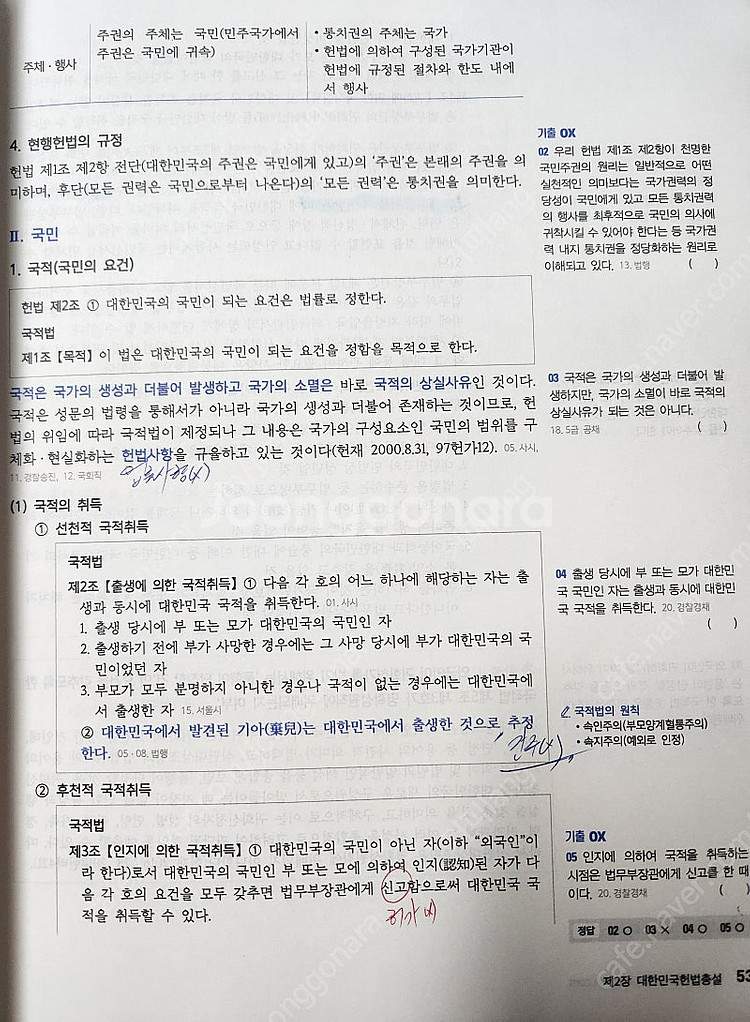 주체·행사
주권의 주체는 국민(민주국가에서
주권은 국민에 귀속)
• 통치권의 주체는 국가
• 헌법에 의하여 구성된 국가기관이
헌법에 규정된 절차와 한도 내에
서 행사
4. 현행헌법의 규정
헌법 제1조 제2항 전단(대한민국의 주권은 국민에게 있고)의 '주권'은 본래의 주권을 의
미하며, 후단(모든 권력은 국민으로부터 나온다)의 '모든 권력'은 통치권을 의미한다.
Ⅱ. 국민
1. 국적(국민의 요건)
헌법 제2조 ① 대한민국의 국민이 되는 요건은 법률로 정한다.
국적법
제1조【목적】이 법은 대한민국의 국민이 되는 요건을 정함을 목적으로 한다.
국적은 국가의 생성과 더불어 발생하고 국가의 소멸은 바로 국적의 상실사유인 것이다.
국적은 성문의 법령을 통해서가 아니라 국가의 생성과 더불어 존재하는 것이므로, 헌
법의 위임에 따라 국적법이 제정되나 그 내용은 국가의 구성요소인 국민의 범위를 구
체화·현실화하는 헌법사항을 규율하고 있는 것이다(헌재 2000.8.31, 97헌가12). 05.사시,
11.경찰승진, 12.국회직
입법사항(x)
(1) 국적의 취득
① 선천적 국적취득
국적법
제2조【출생에 의한 국적취득】① 다음 각 호의 어느 하나에 해당하는 자는 출
생과 동시에 대한민국 국적을 취득한다. 01.사시
1. 출생 당시에 부 또는 모가 대한민국의 국민인 자
2. 출생하기 전에 부가 사망한 경우에는 그 사망 당시에 부가 대한민국의 국
민이었던 자
3. 부모가 모두 분명하지 아니한 경우나 국적이 없는 경우에는 대한민국에
서 출생한 자 15.서울시
② 대한민국에서 발견된 기아(棄兒)는 대한민국에서 출생한 것으로 추정
한다. 05·08.법행
간주(x)
② 후천적 국적취득
국적법
제3조【인지에 의한 국적취득】① 대한민국의 국민이 아닌 자(이하 "외국인"이
라 한다)로서 대한민국의 국민인 부 또는 모에 의하여 인지(認知)된 자가 다
음 각 호의 요건을 모두 갖추면 법무부장관에게 신고함으로써 대한민국 국
적을 취득할 수 있다.
허가(x)
기출 OX
02 우리 헌법 제1조 제2항이 천명한
국민주권의 원리는 일반적으로 어떤
실천적인 의미보다는 국가권력의 정
당성이 국민에게 있고 모든 통치권력
의 행사를 최후적으로 국민의 의사에
귀착시킬 수 있어야 한다는 등 국가권
력 내지 통치권을 정당화하는 원리로
이해되고 있다. 13.법행 ( )
03 국적은 국가의 생성과 더불어 발
생하지만, 국가의 소멸이 바로 국적의
상실사유가 되는 것은 아니다.
18.5급 공채 ( )
04 출생 당시에 부 또는 모가 대한민
국 국민인 자는 출생과 동시에 대한민
국 국적을 취득한다. 20.경찰경채
( )
국적법의 원칙
• 속인주의(부모양계혈통주의)
• 속지주의(예외로 인정)
기출 OX
05 인지에 의하여 국적을 취득하는
시점은 법무부장관에게 신고를 한 때
이다. 20.경찰경채 ( )
정답 02 O 03 × 04 O 05 O
제2장 대한민국헌법총설 53
Joonggonara
cafe.naver.com